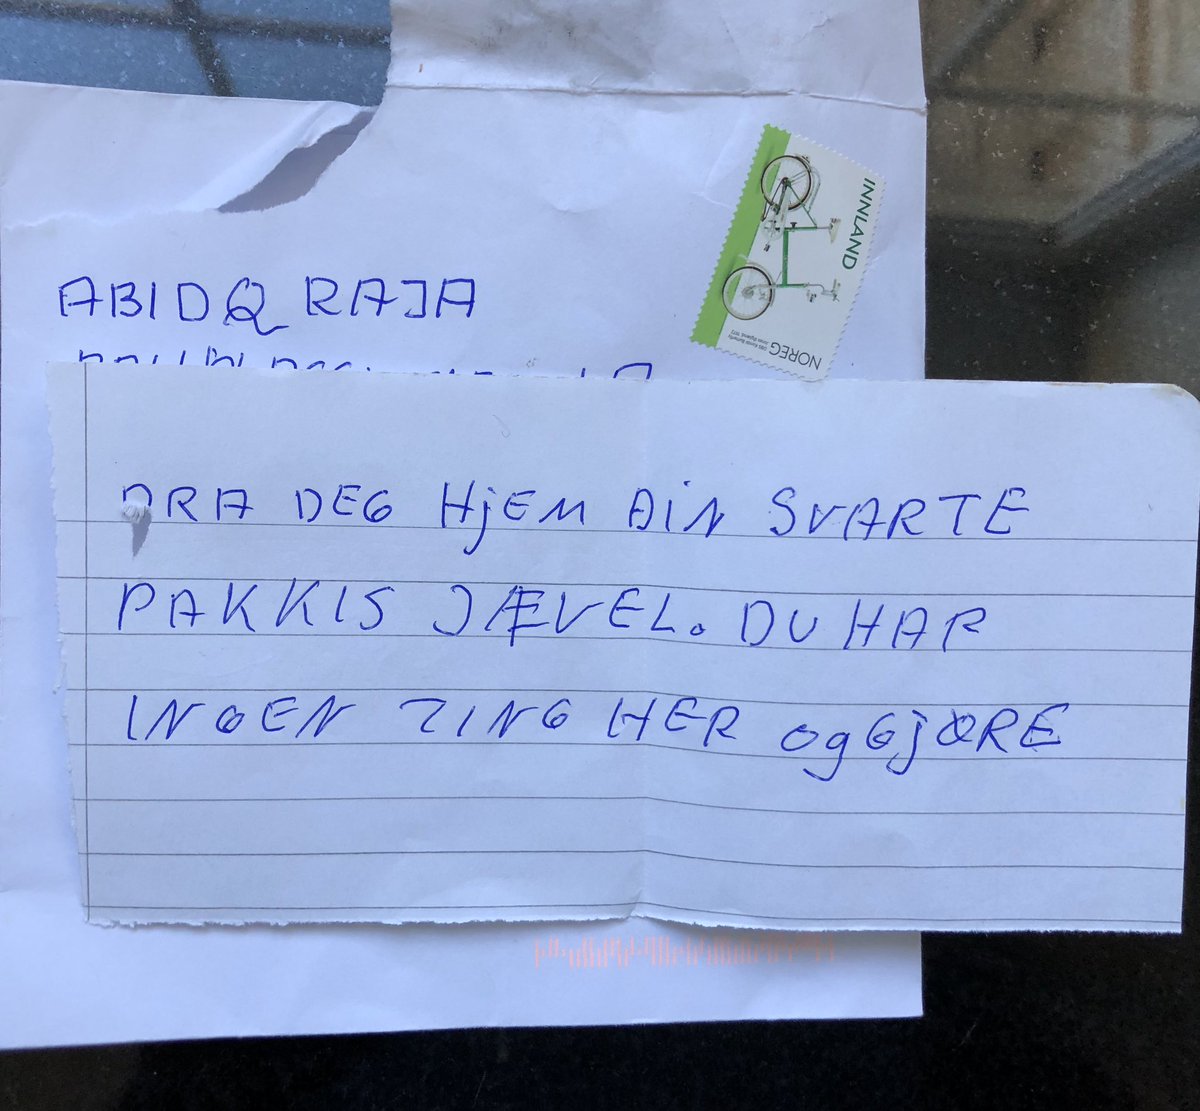 INNLAND
NOREG
ABID Q RAJA
DRA DEG HjEM DIN SVARTE
PAKKIS JÆVEL. DU HAR
INGEN TING HER og GjØRE